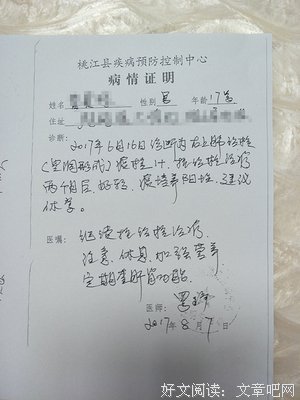 桃江县疾病预防控制中心
病情证明
姓名 性别 男 年龄 17岁
住址
诊断：2017年6月16日诊断为右上肺结核
(空洞形成) 痰检 1+，抗结核治疗
两个月后，好转，痰培养阳性，建议
休学。
医嘱：继续抗结核治疗
注意休息，加强营养
定期查肝肾功能
医师：
2017年 8月 7日
好文阅读：文章吧网